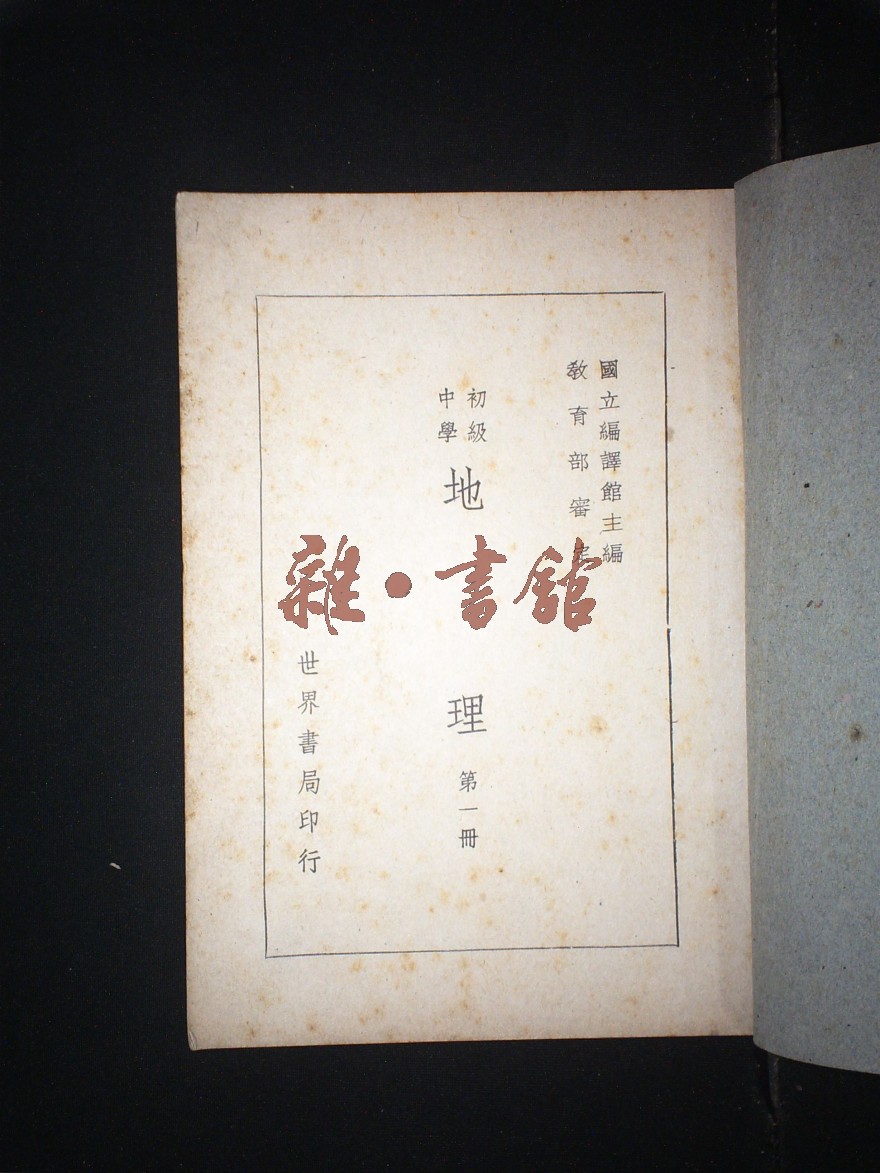 國立編譯館主編
教育部審定
初級
中學
地理
第一冊
世界書局印行
雜·書館